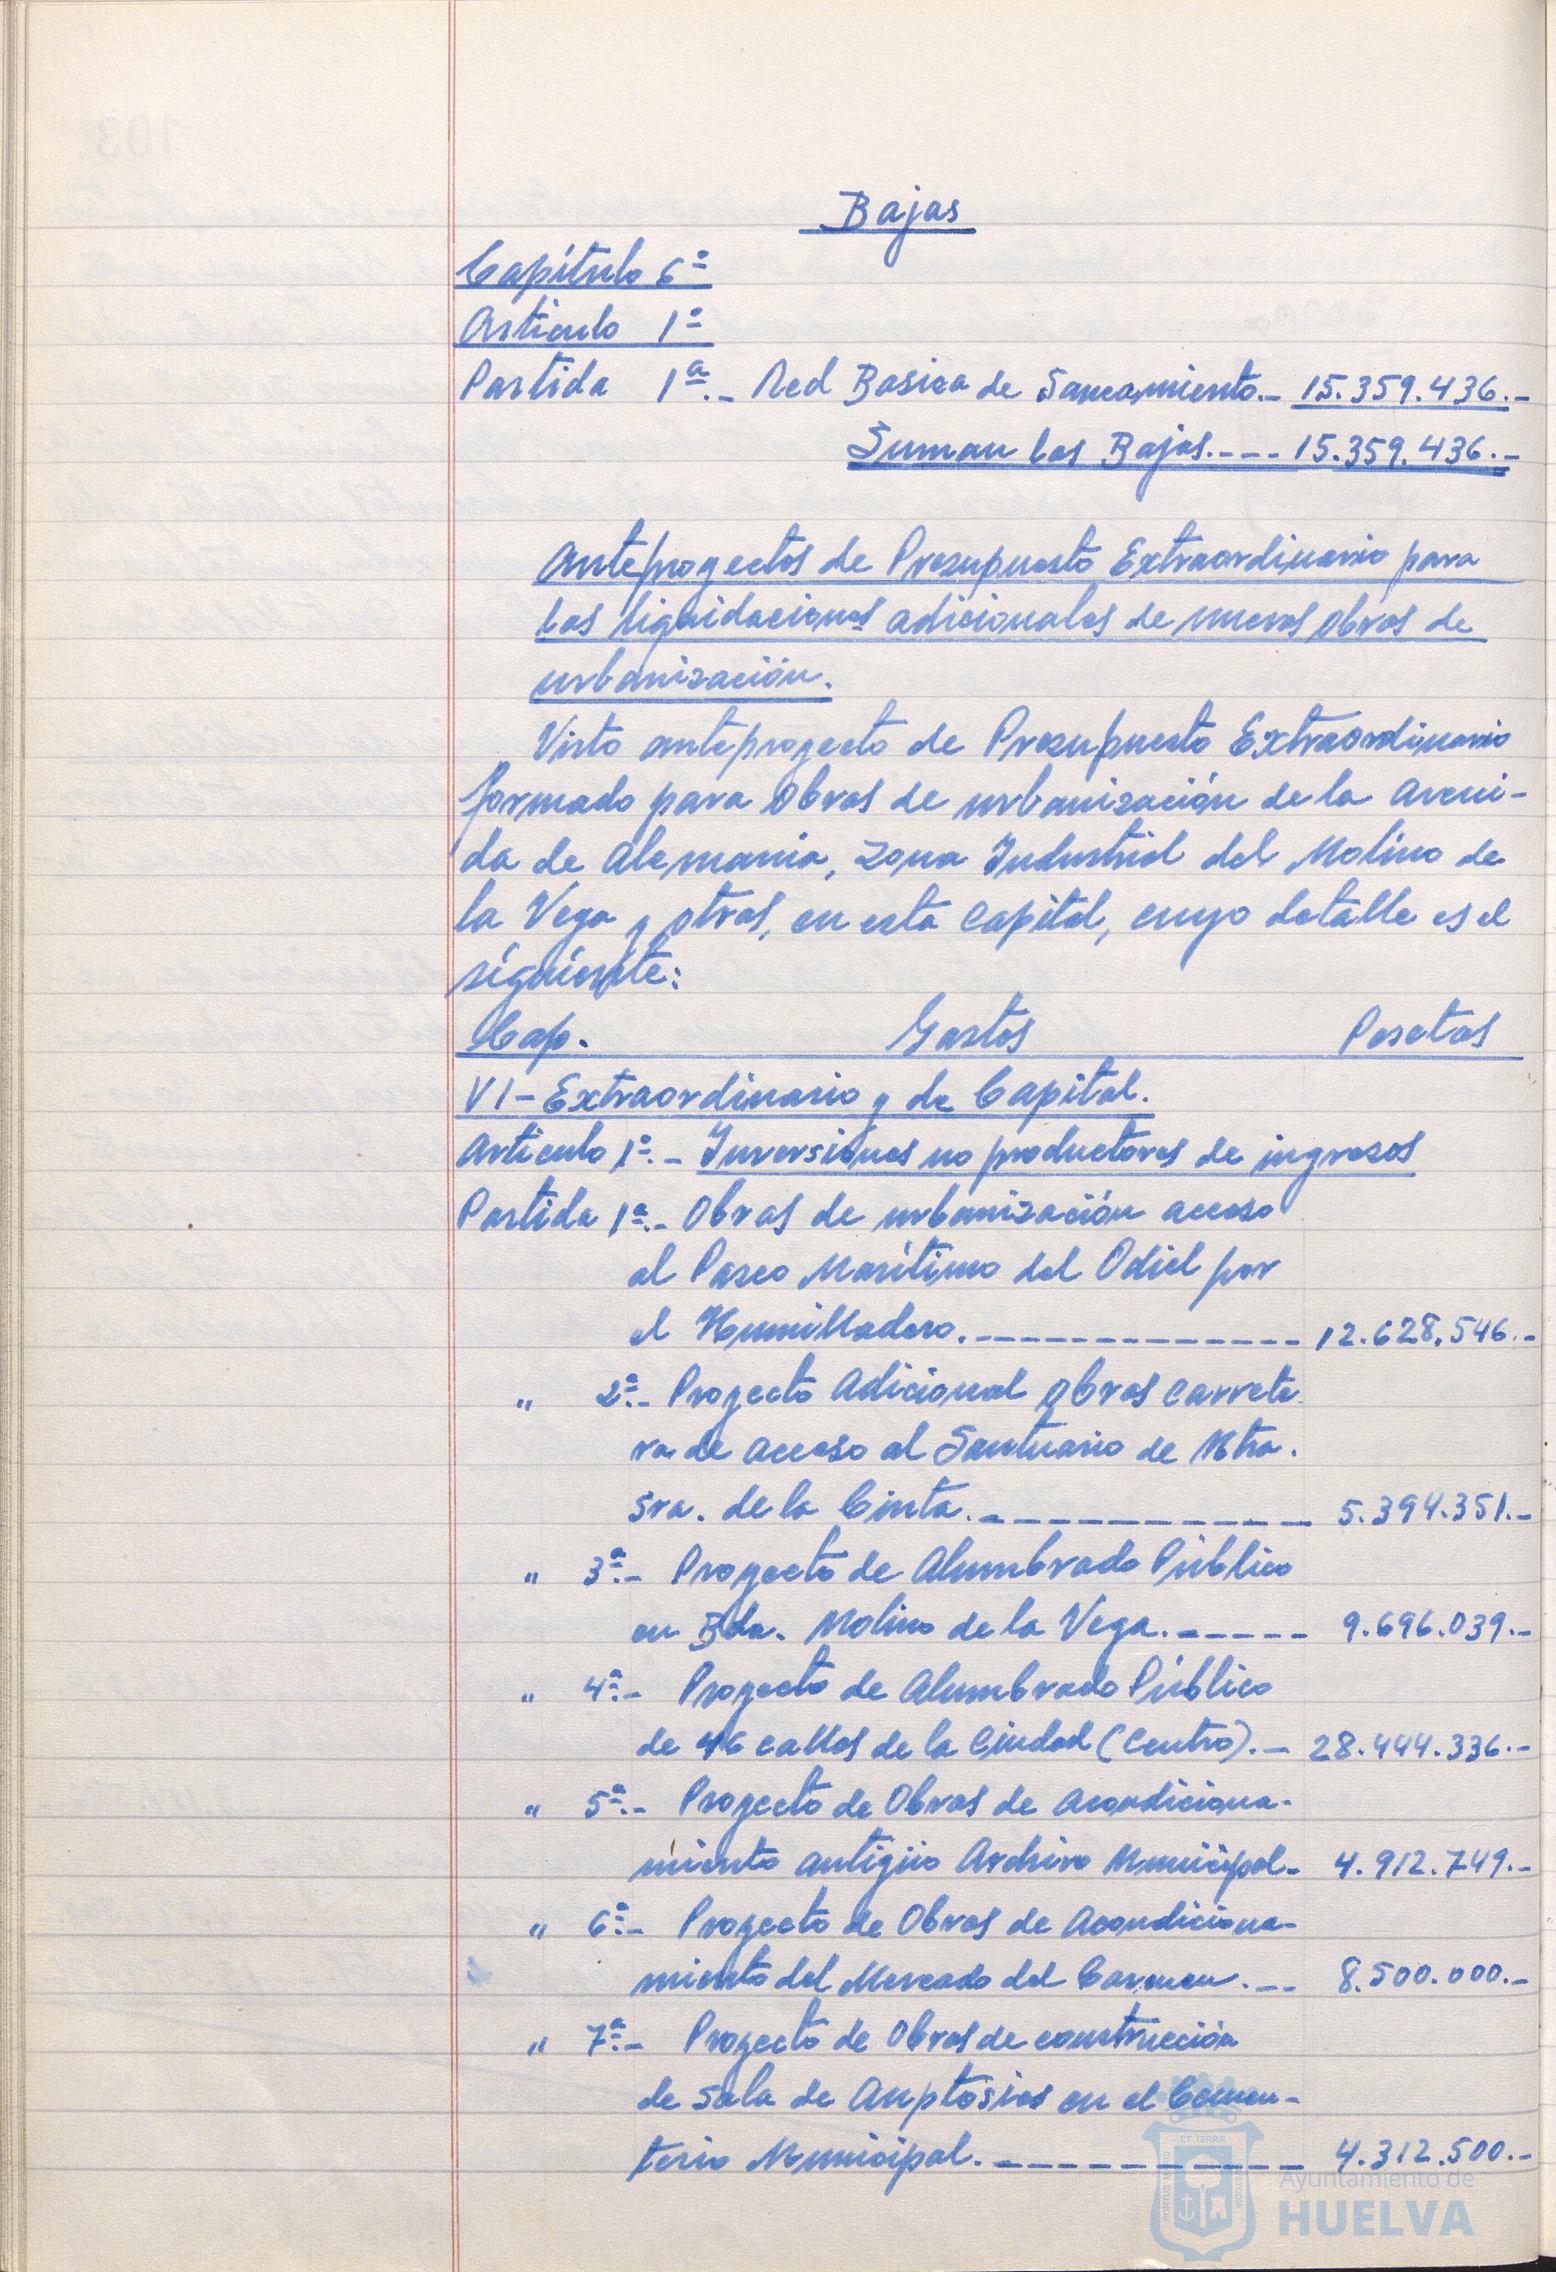 Bajas
Capítulo 6º
Artículo 1º
Partida 1ª.- Red Basica de Saneamiento.- 15.359.436.-
Suman las Bajas.---- 15.359.436.-
Anteproyectos de Presupuesto Extraordinario para
las liquidaciones adicionales de nuevas obras de
urbanización.
Visto anteproyecto de Presupuesto Extraordinario
formado para obras de urbanización de la Aveni-
da de Alemania, Zona Industrial del Molino de
la Vega y otras, en esta Capital, cuyo detalle es el
siguiente:
Cap. Gastos Pesetas
VI- Extraordinario y de Capital.
Artículo 1º.- Inversiones no productoras de ingresos
Partida 1ª.- Obras de urbanización acceso
al Paseo Marítimo del Odiel por
el Humilladero.------------- 12.628.546.-
" 2ª.- Proyecto Adicional obras carrete
ra de acceso al Santuario de Ntra.
Sra. de la Cinta.------------ 5.394.351.-
" 3ª.- Proyecto de Alumbrado Público
en Bda. Molino de la Vega.------ 9.696.039.-
" 4ª.- Proyecto de Alumbrado Público
de 46 calles de la Ciudad (Centro).- 28.444.336.-
" 5ª.- Proyecto de Obras de Acondiciona-
miento antigüo Archivo Municipal- 4.912.749.-
" 6ª.- Proyecto de Obras de Acondiciona-
miento del Mercado del Carmen.-- 8.500.000.-
" 7ª.- Proyecto de Obras de construcción
de Sala de Auptosias en el Cemen-
terio Municipal.----------- 4.312.500.-
Ayuntamiento de
HUELVA